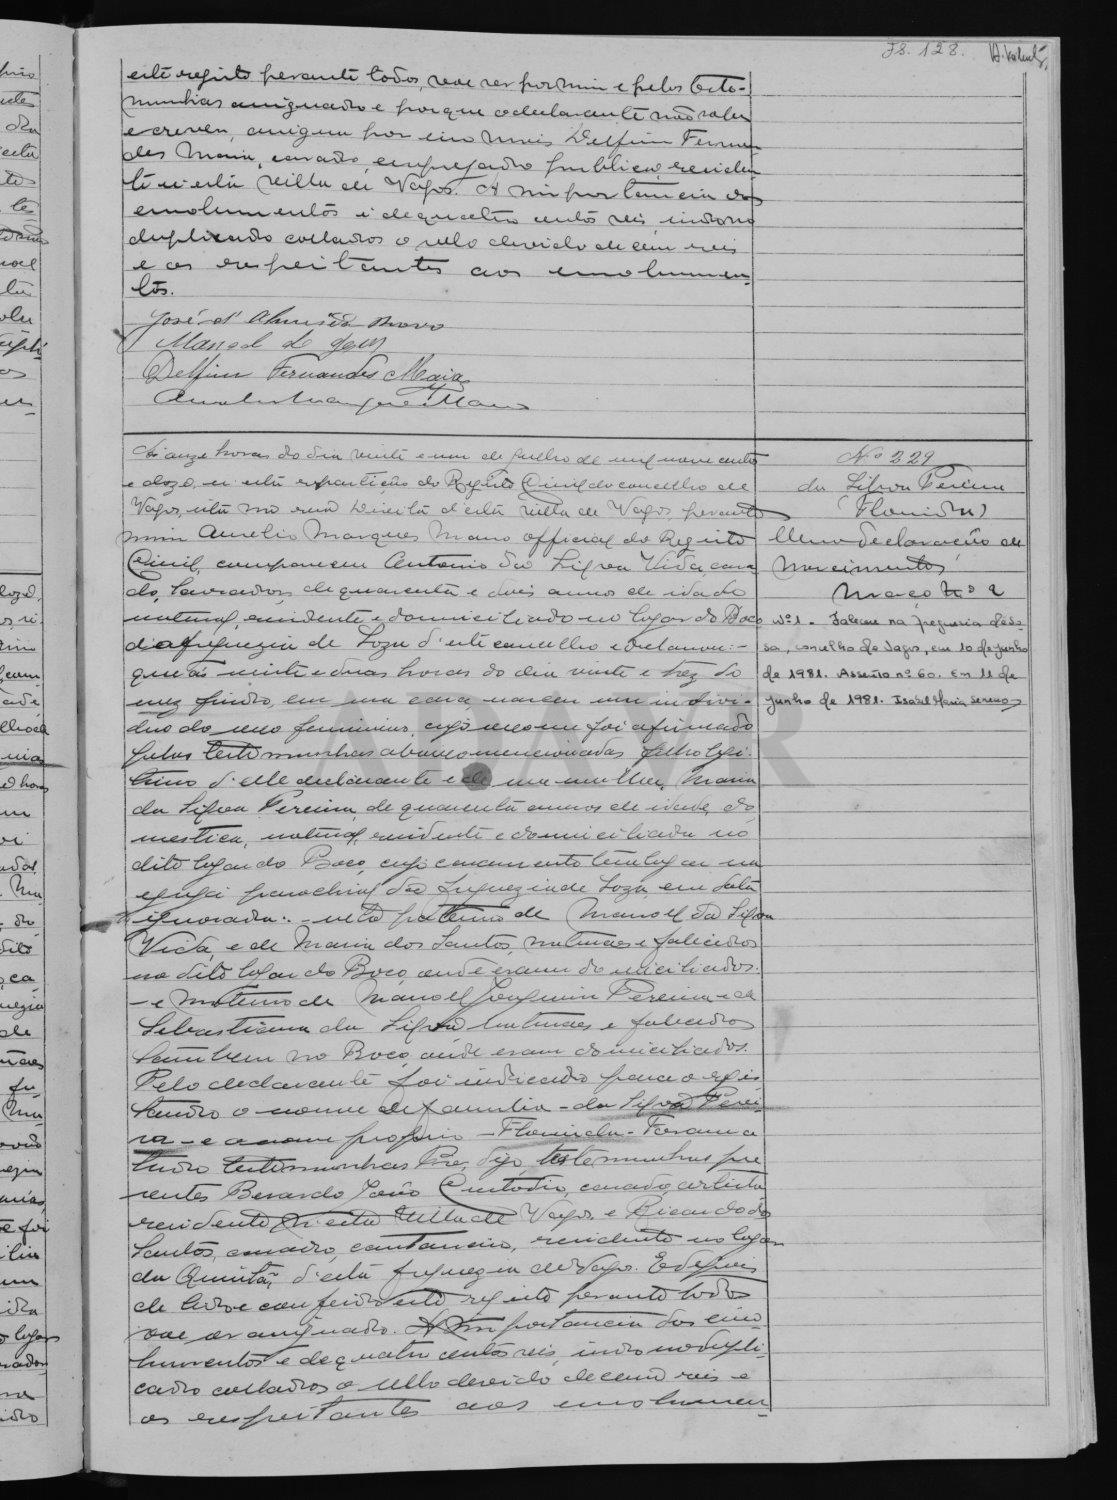 Fs. 128.
este registo perante todos, vae ser por mim e pelas teste-
munhas assignado e porque o declarante não sabe
escrever, assigna por eiro Mais Delfim Fernan
des Maia, casado, empregado publico, residen
te n'esta villa de Vagos. A importancia dos
emolumentos é de quatro centos reis, indo no
duplicado collados o sello devido de cem reis
e os respeitantes aos emolumen-
tos.
José d'Almeida
Manoel de
Delfim Fernandes Maia
Aurelio Marques Mano
Ás onze horas do dia vinte e um de Julho de mil nove centos
e doze, n'esta repartição do Registo Civil do concelho de
Vagos, sita na rua Direita d'esta villa de Vagos, perante
mim Aurelio Marques Mano official do Registo
Civil, compareceu Antonio da Silva Vida, casa
do, lavrador, de quarenta e dois annos de idade
natural, residente e domiciliado no logar do Boco
da freguezia de Soza d'este concelho e declarou:-
que ás vinte e duas horas do dia vinte e trez do
mez findo, em sua casa, nasceu um indivi-
duo do sexo feminino, cujo sexo foi afirmado
pelas testemunhas abaixo mencionadas, filho legi-
timo d'elle declarante e de sua mulher, Maria
da Silva Pereira, de quarenta annos de idade, do
mestica, natural, residente e domiciliada no
dito logar do Boco, cujo casamento teve logar na
egreja parochial da freguezia de Soza, em data
ignorada:- neto paterno de Manoel da Silva
Vida, e de Maria dos Santos, naturaes e falecidos
no dito logar do Boco, onde eram domiciliados.
- e materno de Manoel Joaquim Pereira e de
Sebastiana da Silva naturaes e falecidos
tambem no Boco, onde eram domiciliados.
Pelo declarante foi indicado para o regis
tando o nome de familia - da Silva Perei-
ra - e o nome proprio - Florinda - Foram a
tudo testemunhas Ber, digo, testemunhas pre
sentes Berardo João Custodio, casado, artista
residente n'esta Villa de Vagos, e Ricardo dos
Santos, casado, cantoneiro, residente no logar
da Quintã, d'esta freguezia de Vagos. E depois
de lido e conferido este registo perante todos
vae ser assignado. A importancia dos emo-
lumentos é de quatro centos reis, indo no dupli-
cado collados o sello devido de cem reis e
os respeitantes aos emolumen-
Nº 229
da Silva Pereira
(Florinda)
Uma declaração de
nascimentos
Maço nº 2
Nº1 - Faleceu na freguesia de So-
sa, concelho de Vagos, em 10 de junho
de 1981. Assento nº 60. Em 11 de
junho de 1981. Isabel Maria